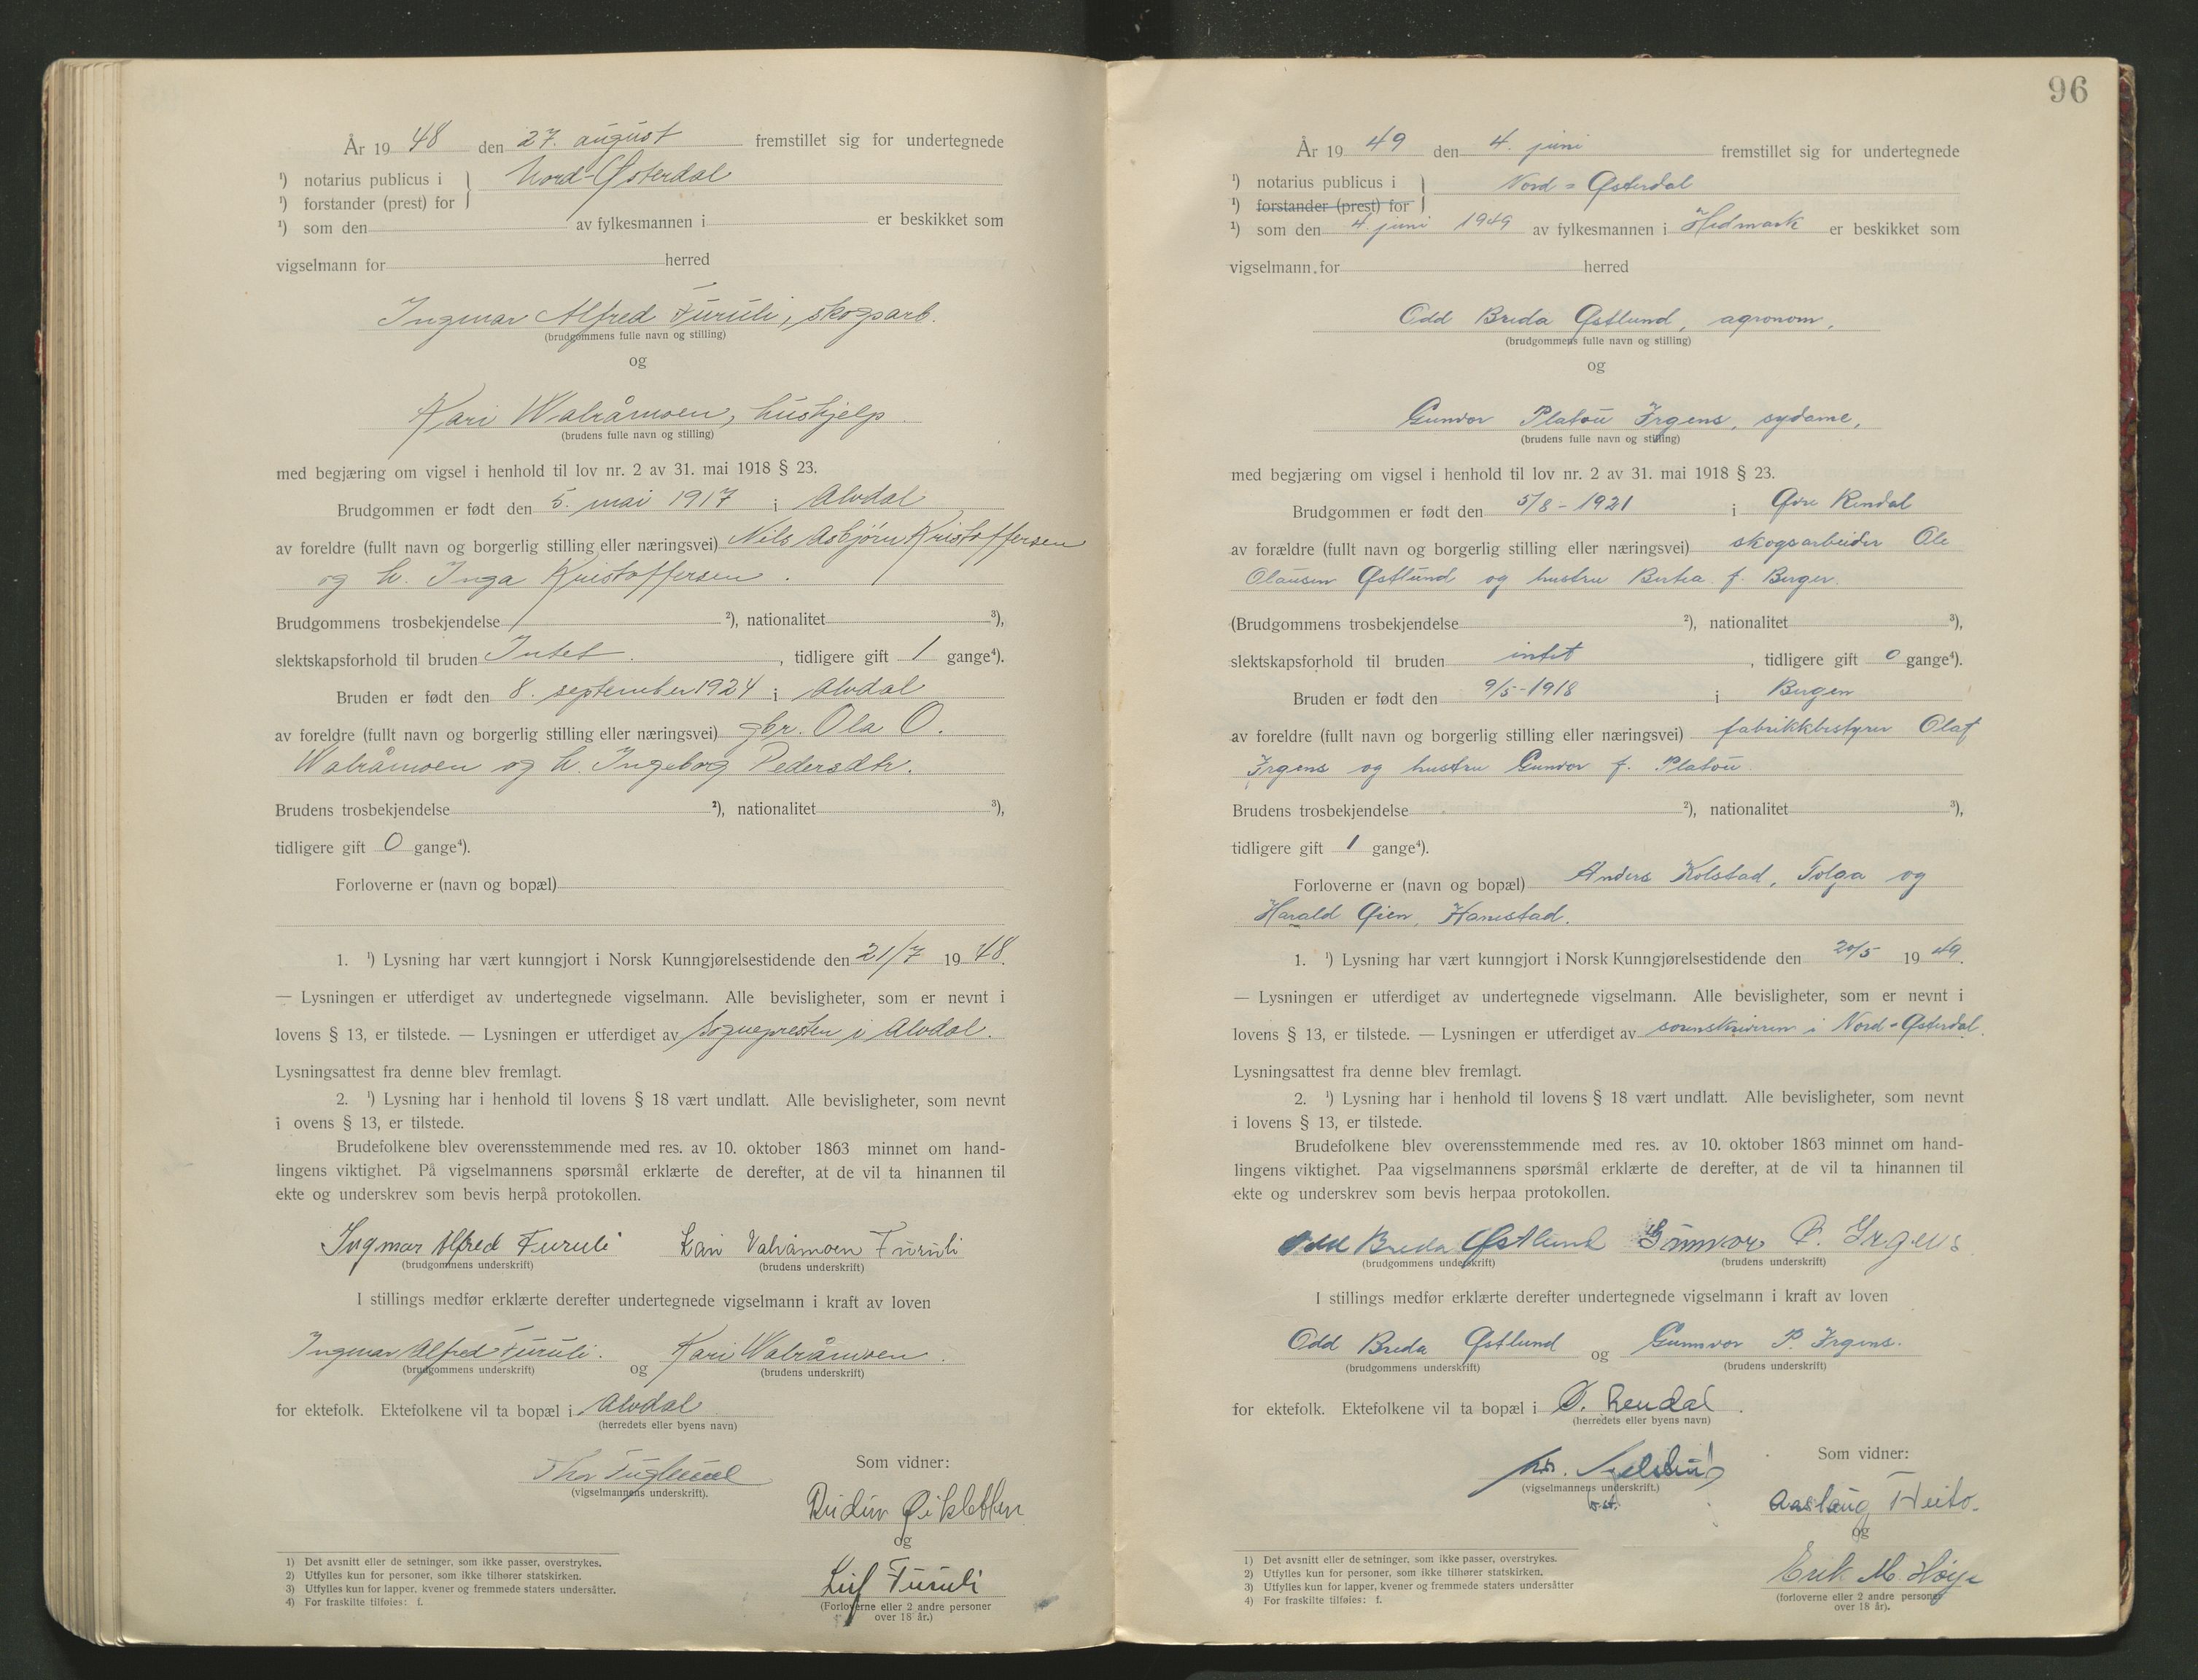 År 19 48 den 27. august fremstillet sig for undertegnede
¹) notarius publicus i } Nord-Østerdal
¹) forstander (prest) for
¹) som den av fylkesmannen i er beskikket som
vigselmann for herred
Ingmar Alfred Furuli, skogsarb.
(brudgommens fulle navn og stilling)
og
Kari Walråmoen, hushjelp
(brudens fulle navn og stilling)
med begjæring om vigsel i henhold til lov nr. 2 av 31. mai 1918 § 23.
Brudgommen er født den 5. mai 1917 i Alvdal
av foreldre (fullt navn og borgerlig stilling eller næringsvei) Nils Asbjørn Kristoffersen
og h. Inga Kristoffersen.
Brudgommens trosbekjendelse ²), nationalitet ³),
slektskapsforhold til bruden Intet. , tidligere gift 1 gange⁴).
Bruden er født den 8. september 1924 i Alvdal
av foreldre (fullt navn og borgerlig stilling eller næringsvei) gbr. Ola O.
Walråmoen og h. Ingeborg Pedersdtr.
Brudens trosbekjendelse ²), nationalitet ³),
tidligere gift 0 gange⁴).
Forloverne er (navn og bopæl)
1. ¹) Lysning har vært kunngjort i Norsk Kunngjørelsestidende den 21/7 19 48.
— Lysningen er utferdiget av undertegnede vigselmann. Alle bevisligheter, som er nevnt i
lovens § 13, er tilstede. — Lysningen er utferdiget av Sognepresten i Alvdal.
Lysningsattest fra denne blev fremlagt.
2. ¹) Lysning har i henhold til lovens § 18 vært undlatt. Alle bevisligheter, som nevnt
i ovens § 13, er tilstede.
Brudefolkene blev overensstemmende med res. av 10. oktober 1863 minnet om hand-
lingens viktighet. På vigselmannens spørsmål erklærte de derefter, at de vil ta hinannen til
ekte og underskrev som bevis herpå protokollen.
Ingmar Alfred Furuli Kari Valråmoen Furuli
(brudgommens underskrift) (brudens underskrift)
I stillings medfør erklærte derefter undertegnede vigselmann i kraft av loven
Ingmar Alfred Furuli. og Kari Walråmoen.
(brudgommens underskrift) (brudens underskrift)
for ektefolk. Ektefolkene vil ta bopæl i Alvdal
(herredets eller byens navn)
Thor
(vigselmannens underskrift).
Som vidner:
og
Leif Furuli
(Forloverne eller 2 andre personer
over 18 år.)
1) Det avsnitt eller de setninger, som ikke passer, overstrykes.
2) Utfylles kun for personer, som ikke tilhører statskirken.
3) Utfylles kun for lapper, kvener og fremmede staters undersåtter.
4) For fraskilte tilføies: f.
96
År 19 49 den 4. juni fremstillet sig for undertegnede
¹) notarius publicus i } Nord-Østerdal
¹) forstander (prest) for
¹) som den 4. juni 1949 av fylkesmannen i Hedmark er beskikket som
vigselmann for herred
Odd Breda Østlund, agronom,
(brudgommens fulle navn og stilling)
og
Gunvor Platou Irgens, sydame,
(brudens fulle navn og stilling)
med begjæring om vigsel i henhold til lov nr. 2 av 31. mai 1918 § 23.
Brudgommen er født den 5/8-1921 i Øvre Rendal
av forældre (fullt navn og borgerlig stilling eller næringsvei) skogsarbeider Ole
Olausen Østlund og hustru Berta f. Berger.
(Brudgommens trosbekjendelse ²), nationalitet ³),
slektskapsforhold til bruden intet , tidligere gift 0 gange⁴).
Bruden er født den 9/5-1918 i Bergen
av foreldre (fullt navn og borgerlig stilling eller næringsvei) fabrikkbestyrer Olaf
Irgens og hustru Gunvor f. Platou
Brudens trosbekjendelse ²), nationalitet ³),
tidligere gift 1 gange⁴).
Forloverne er (navn og bopæl) Anders Kolstad, Tolga og
Harald Øien, Hanestad.
1. ¹) Lysning har vært kunngjort i Norsk Kunngjørelsestidende den 20/5 19 49.
— Lysningen er utferdiget av undertegnede vigselmann. Alle bevisligheter, som er nevnt i
lovens § 13, er tilstede. — Lysningen er utferdiget av sorenskriveren i Nord-Østerdal.
Lysningsattest fra denne blev fremlagt.
2. ¹) Lysning har i henhold til lovens § 18 vært undlatt. Alle bevisligheter, som nevnt
i lovens § 13, er tilstede.
Brudefolkene blev overensstemmende med res. av 10. oktober 1863 minnet om hand-
lingens viktighet. Paa vigselmannens spørsmål erklærte de derefter, at de vil ta hinannen til
ekte og underskrev som bevis herpaa protokollen.
Odd Breda Østlund Gunnvor P. Irgens
(brudgommens underskrift) (brudens underskrift)
I stillings medfør erklærte derefter undertegnede vigselmann i kraft av loven
Odd Breda Østlund og Gunnvor P. Irgens.
(brudgommens underskrift) (brudens underskrift)
for ektefolk. Ektefolkene vil ta bopæl i Ø. Rendal.
(herredets eller byens navn)
(vigselmannens underskrift.)
Som vidner:
Aaslaug
og
Erik M. Høye
(forloverne eller 2 andre personer
over 18 år).
1) Det avsnitt eller de setninger, som ikke passer, overstrykes.
2) Utfylles kun for personer, som ikke tilhører statskirken.
3) Utfylles kun for lapper, kvener og fremmede staters undersåtter
4) For fraskilte tilføies: f.